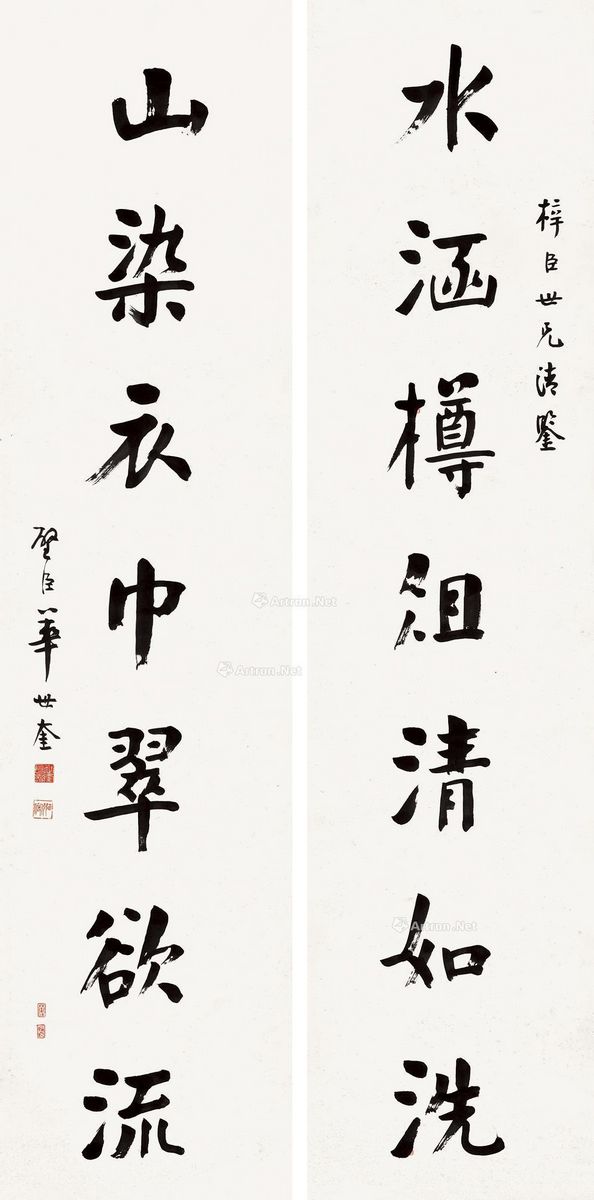 梓臣世兄清鑒
水涵樽俎清如洗
山染衣巾翠欲流
壁臣華世奎
Artron.Net
Artron.Net
Artron.Net